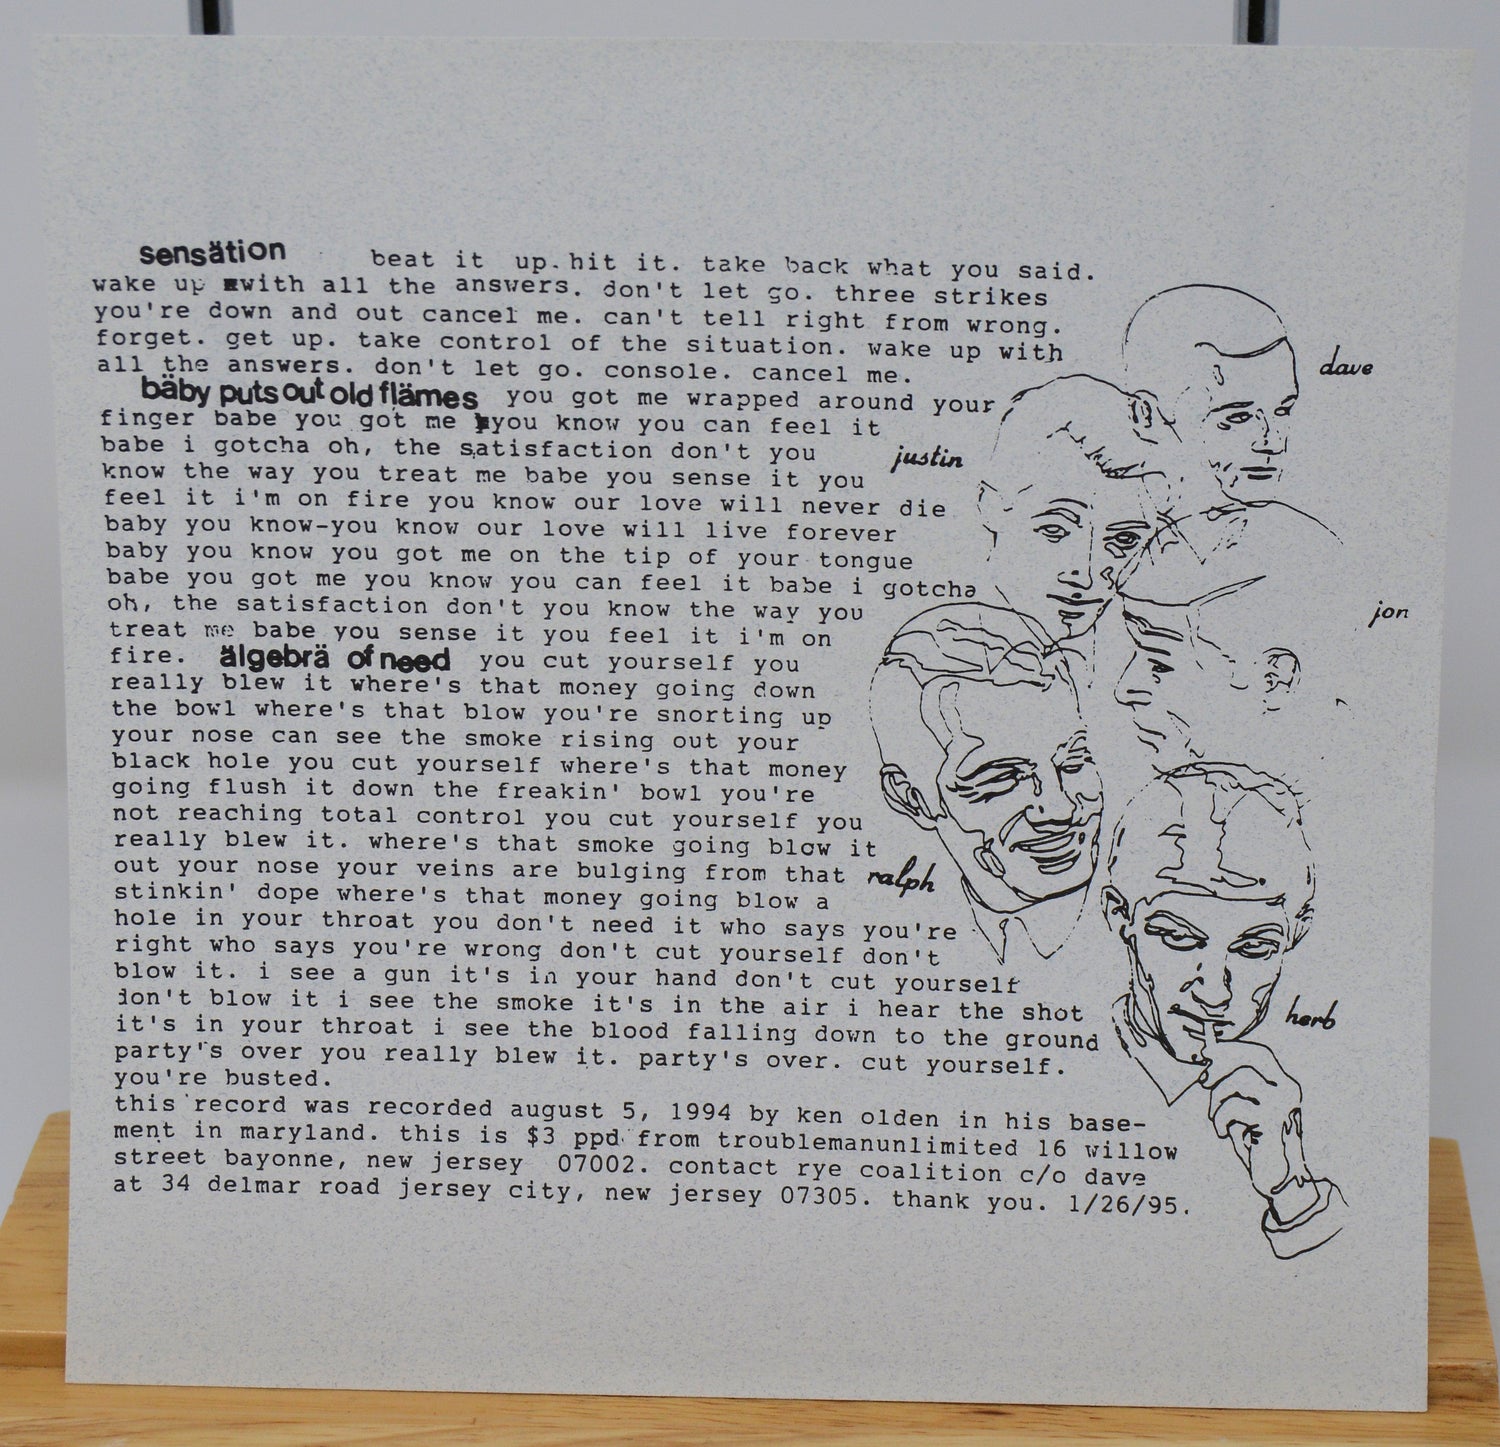 sensätion beat it up.hit it. take back what you said.
wake up with all the answers. don't let go. three strikes
you're down and out cancel me. can't tell right from wrong.
forget. get up. take control of the situation. wake up with
all the answers. don't let go. console. cancel me.
bäby puts out old flämes you got me wrapped around your
finger babe you got me you know you can feel it
babe i gotcha oh, the satisfaction don't you
know the way you treat me babe you sense it you
feel it i'm on fire you know our love will never die
baby you know-you know our love will live forever
baby you know you got me on the tip of your tongue
babe you got me you know you can feel it babe i gotcha
oh, the satisfaction don't you know the way you
treat me babe you sense it you feel it i'm on
fire. älgebrä of need you cut yourself you
really blew it where's that money going down
the bowl where's that blow you're snorting up
your nose can see the smoke rising out your
black hole you cut yourself where's that money
going flush it down the freakin' bowl you're
not reaching total control you cut yourself you
really blew it. where's that smoke going blow it
out your nose your veins are bulging from that
stinkin' dope where's that money going blow a
hole in your throat you don't need it who says you're
right who says you're wrong don't cut yourself don't
blow it. i see a gun it's in your hand don't cut yourself
don't blow it i see the smoke it's in the air i hear the shot
it's in your throat i see the blood falling down to the ground
party's over you really blew it. party's over. cut yourself.
you're busted.
this record was recorded august 5, 1994 by ken olden in his base-
ment in maryland. this is $3 ppd from troublemanunlimited 16 willow
street bayonne, new jersey 07002. contact rye coalition c/o dave
at 34 delmar road jersey city, new jersey 07305. thank you. 1/26/95.
dave
justin
jon
ralph
herb